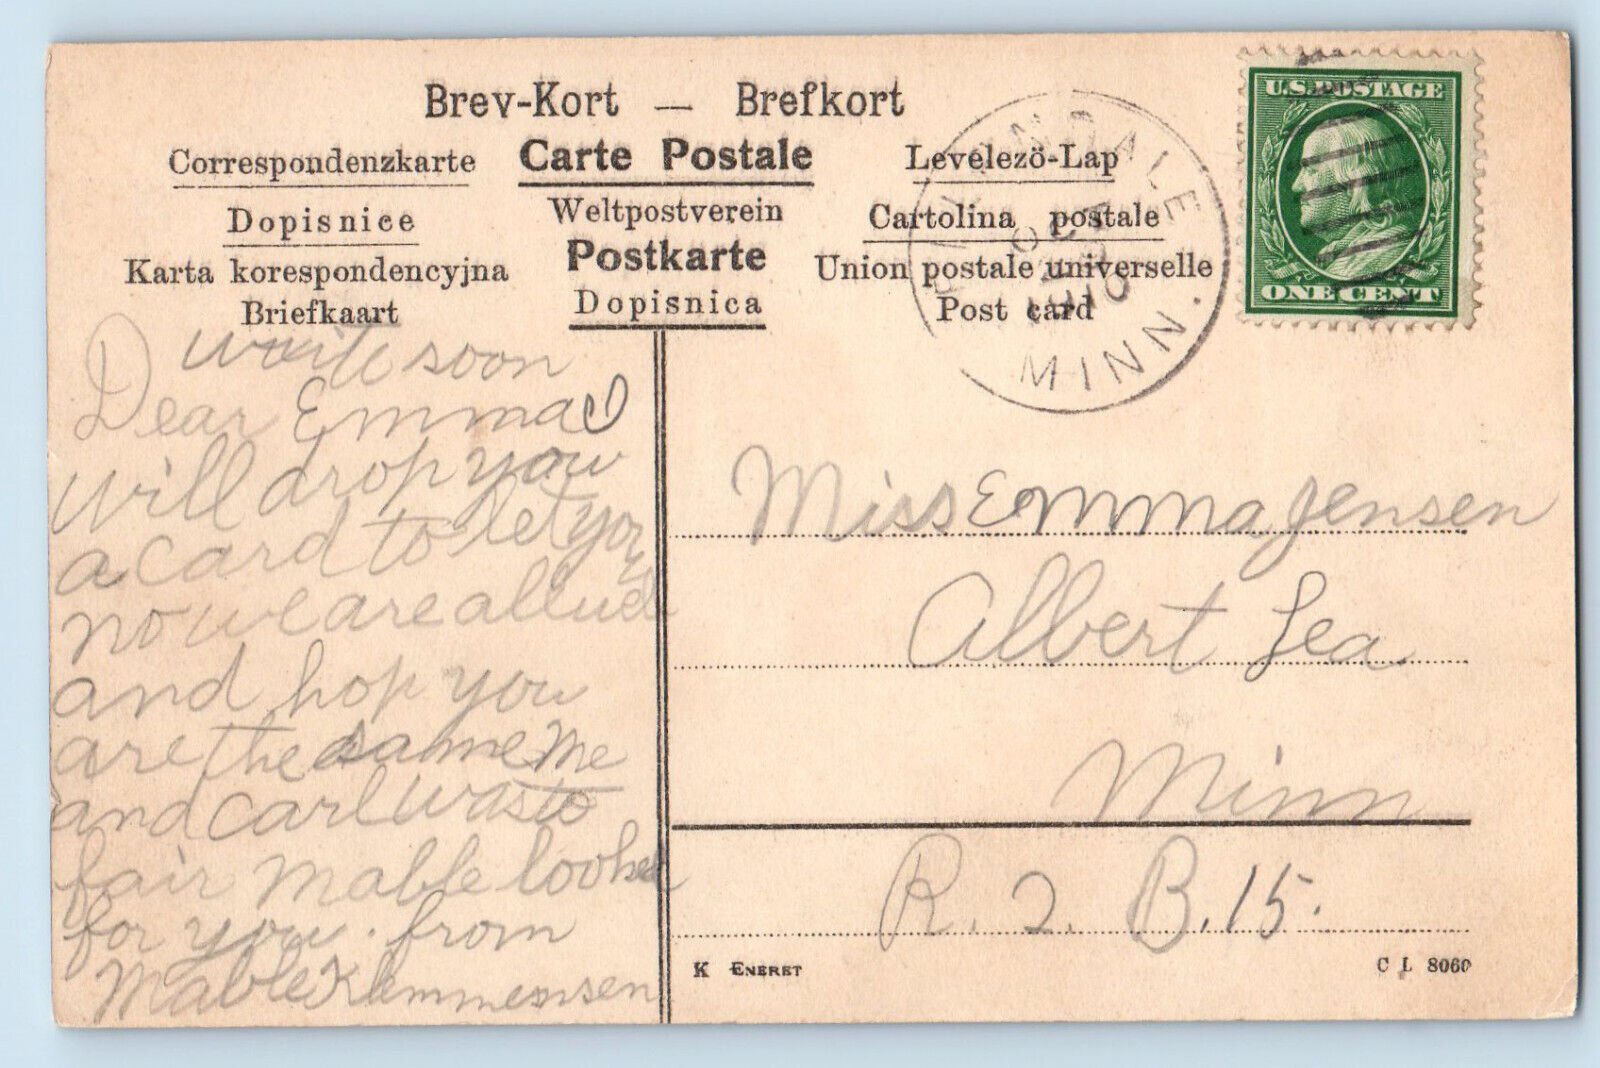 Brev-Kort — Brefkort
Correspondenzkarte
Carte Postale
Levelezö-Lap
Dopisnice
Weltpostverein
Cartolina postale
Karta korespondencyjna
Postkarte
Union postale universelle
Briefkaart
Dopisnica
Post card
U.S. POSTAGE
ONE CENT
MINN.
write soon
Dear Emma I
will drop you
a card to let you
no we are all well
and hop you
are the same me
and carl was to
fair mable looked
for you. from
Mable Klemmensen
Miss Emma Jensen
Albert Lea
Minn
R. 2. B. 15.
K ENERET
C L 8060